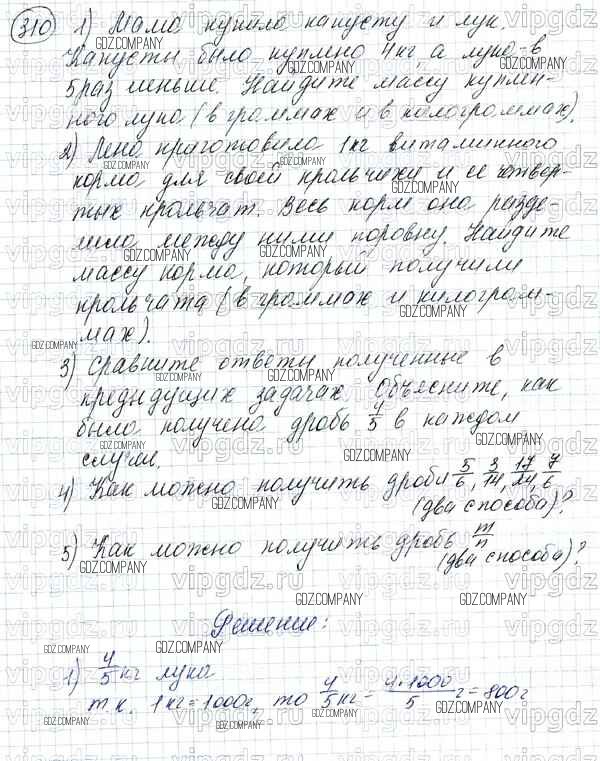 310 1) Мама купила капусту и лук.
Капусты было куплено 4 кг, а лука - в
5 раз меньше. Найдите массу куплен-
ного лука (в граммах и в килограммах).
2) Лена приготовила 1 кг витаминного
корма для своей крольчихи и её четвер-
тых крольчат. Весь корм она разде-
лила между ними поровну. Найдите
массу корма, который получили
крольчата (в граммах и килограм-
мах).
3) Сравните ответы полученные в
предыдущих задачах. Объясните, как
было получено дробь 4/5 в каждом
случае.
4) Как можно получить дроби 5/6, 3/14, 17/24, 7/6
(два способа)?
5) Как можно получить дробь m/n
(два способа)?
Решение:
1) 4/5 кг лука
т.к. 1 кг = 1000 г, то 4/5 кг = 4·1000/5 г = 800 г
GDZ.COMPANY
vipgdz.ru